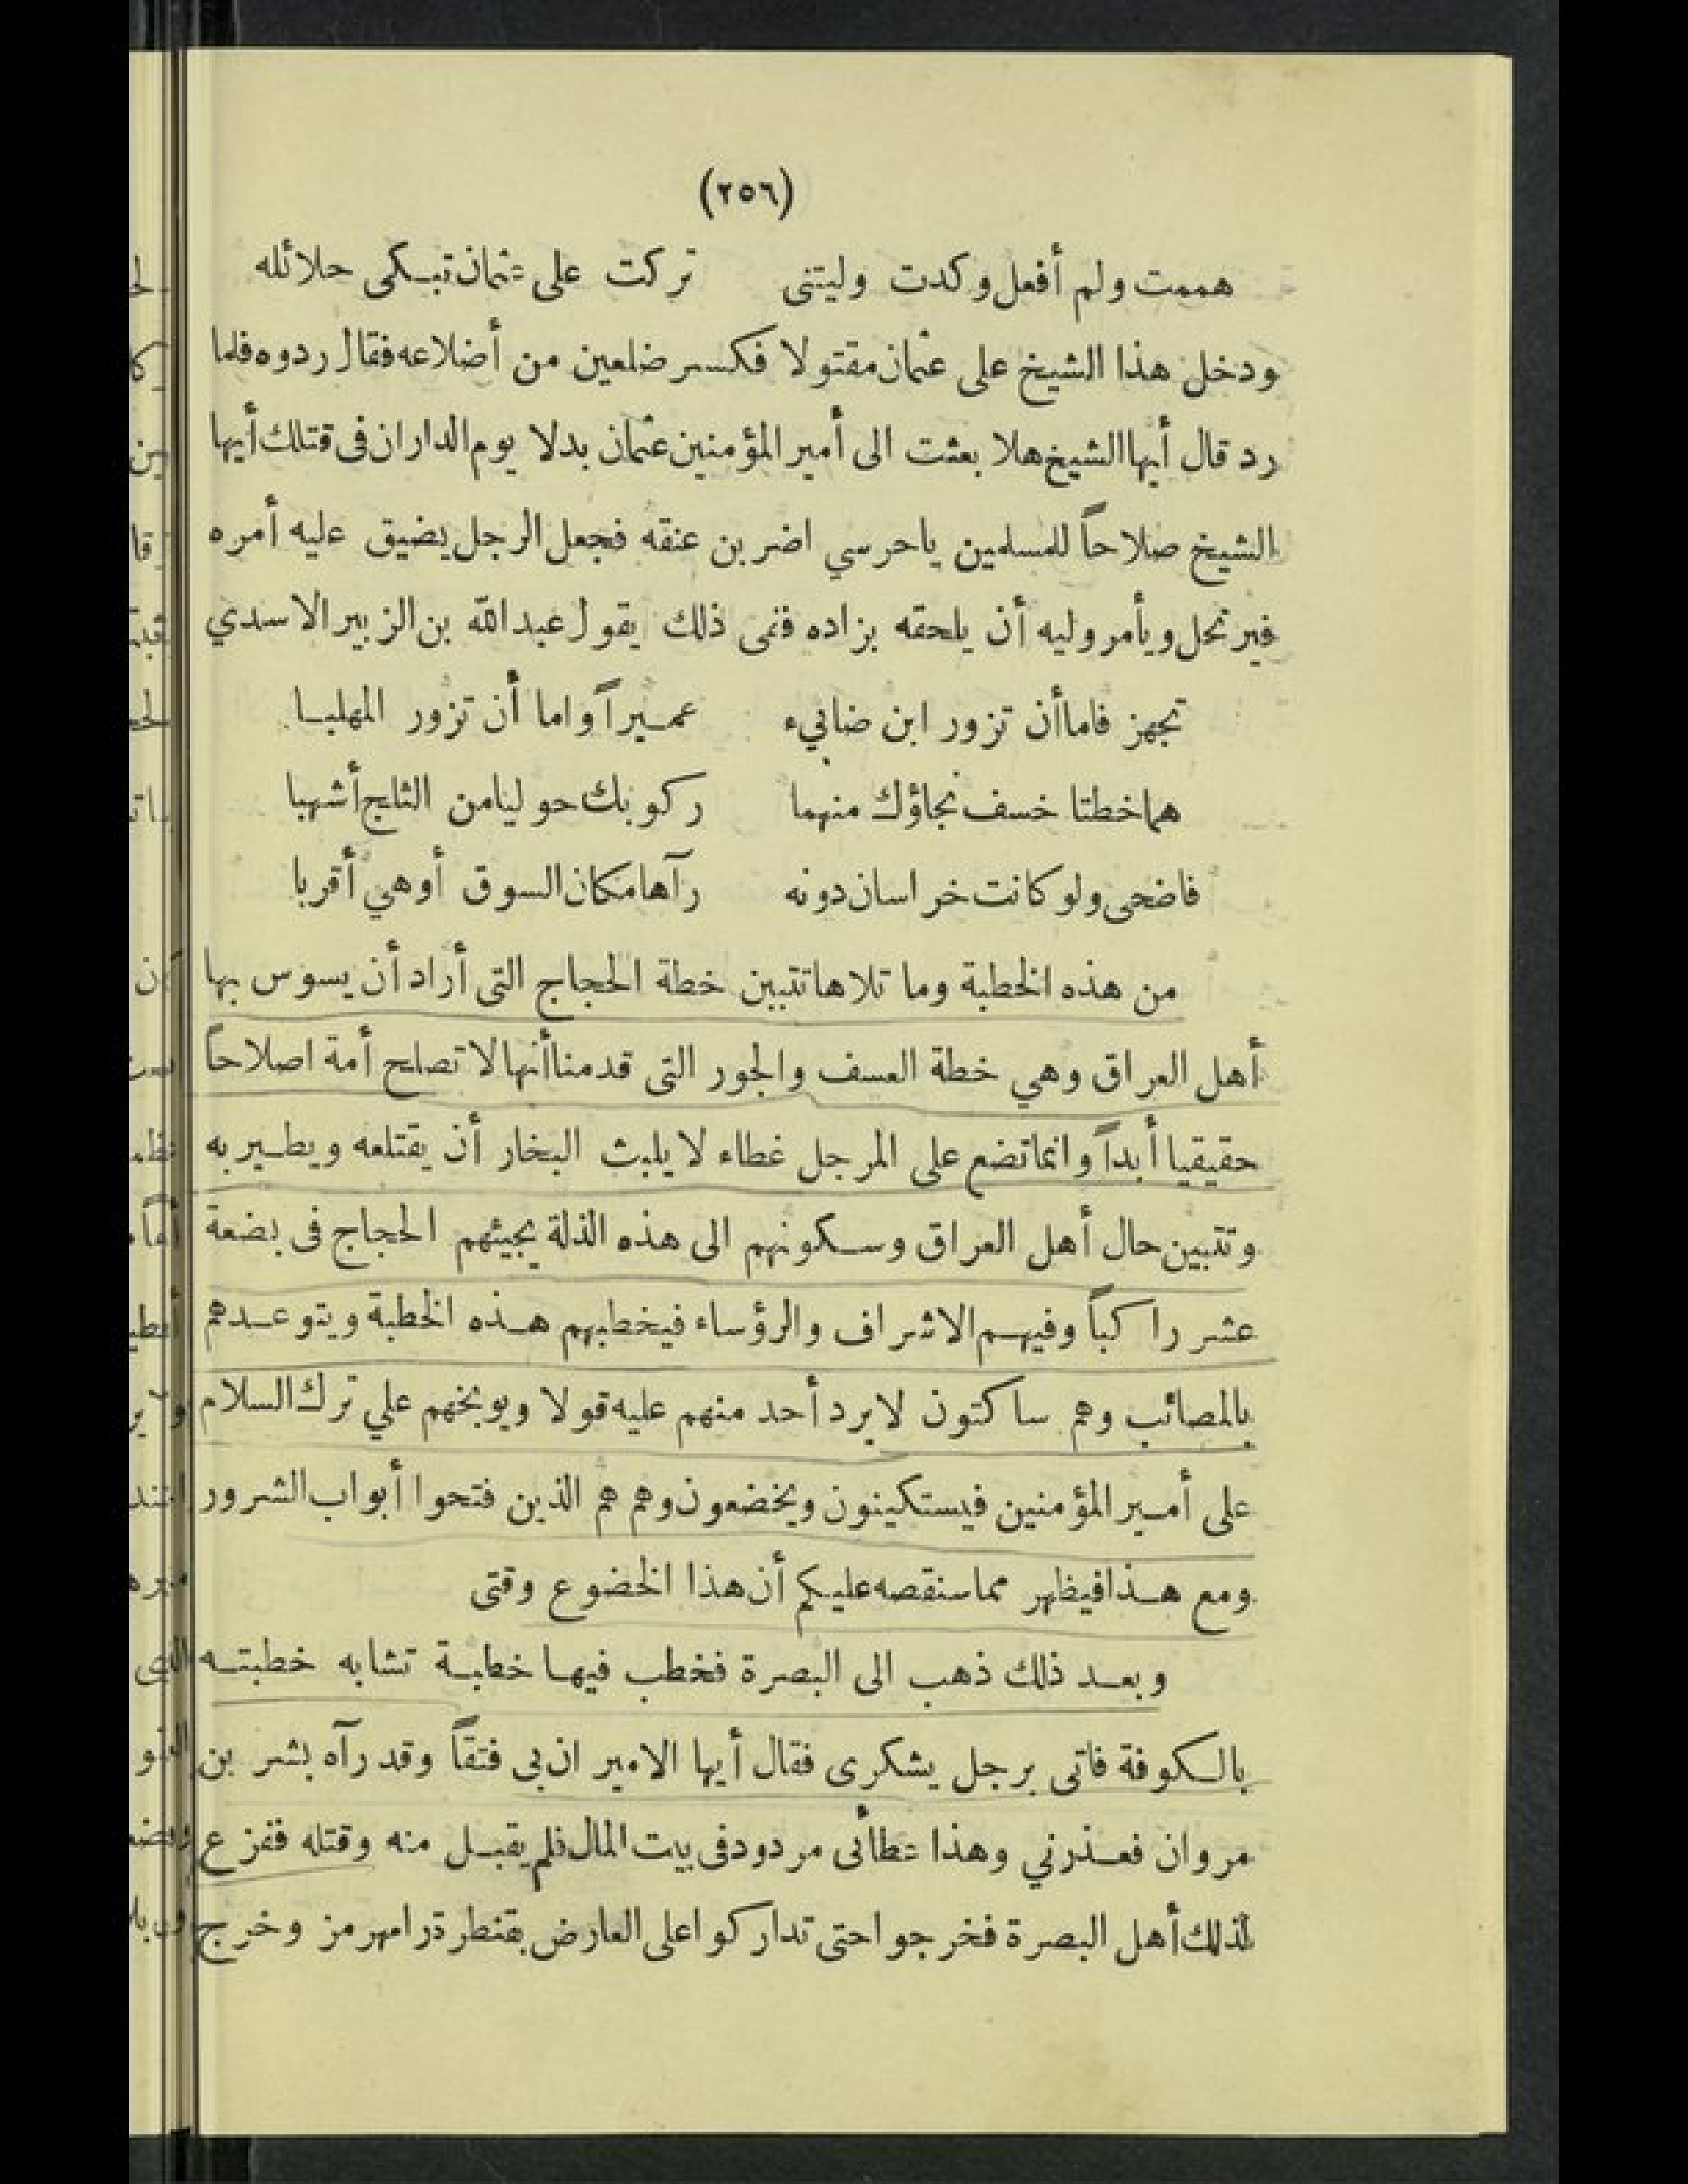 (٢٥٦)
هممت ولم أفعل وكدت وليتنى تركت على عثمان تبكى حلائله
ودخل هذا الشيخ على عثمان مقتولا فكسر ضلعين من أضلاعه فقال ردوه فلما
رد قال أيها الشيخ هلا بعثت الى أمير المؤمنين عثمان بدلا يوم الدار ان فى قتلك أيها
الشيخ صلاحاً للمسلمين ياحرسي اضربن عنقه فجعل الرجل يضيق عليه أمره
فيرتحل ويأمر وليه أن يلحقه بزاده ففى ذلك يقول عبد الله بن الزبير الاسدي
تجهز فاما أن تزور ابن ضابيء عميراً واما أن تزور المهلبا
هما خطتا خسف نجاؤك منهما ركوبك حوليا من الثلج أشهبا
فاضحى ولو كانت خراسان دونه رآها مكان السوق أو هي أقربا
من هذه الخطبة وما تلاها تتبين خطة الحجاج التى أراد أن يسوس بها
أهل العراق وهي خطة العسف والجور التى قدمنا أنها لا تصلح أمة اصلاحاً
حقيقيا أبداً وانما تضع على المرجل غطاء لا يلبث البخار أن يقتلعه ويطير به
وتتبين حال أهل العراق وسكونهم الى هذه الذلة يجيئهم الحجاج فى بضعة
عشر راكباً وفيهم الاشراف والرؤساء فيخطبهم هذه الخطبة ويتوعدهم
بالمصائب وهم ساكتون لا يرد أحد منهم عليه قولا ويوبخهم علي ترك السلام
على أمير المؤمنين فيستكينون ويخضعون وهم هم الذين فتحوا أبواب الشرور
ومع هذا فيظهر مما سنقصه عليكم أن هذا الخضوع وقتى
وبعد ذلك ذهب الى البصرة فخطب فيها خطبة تشابه خطبته
بالكوفة فاتى برجل يشكرى فقال أيها الامير ان بى فتقاً وقد رآه بشر بن
مروان فعذرني وهذا عطائى مردود فى بيت المال فلم يقبل منه وقتله ففزع
لذلك أهل البصرة فخرجوا حتى تداركوا على العارض بقنطرة رامهرمز وخرج